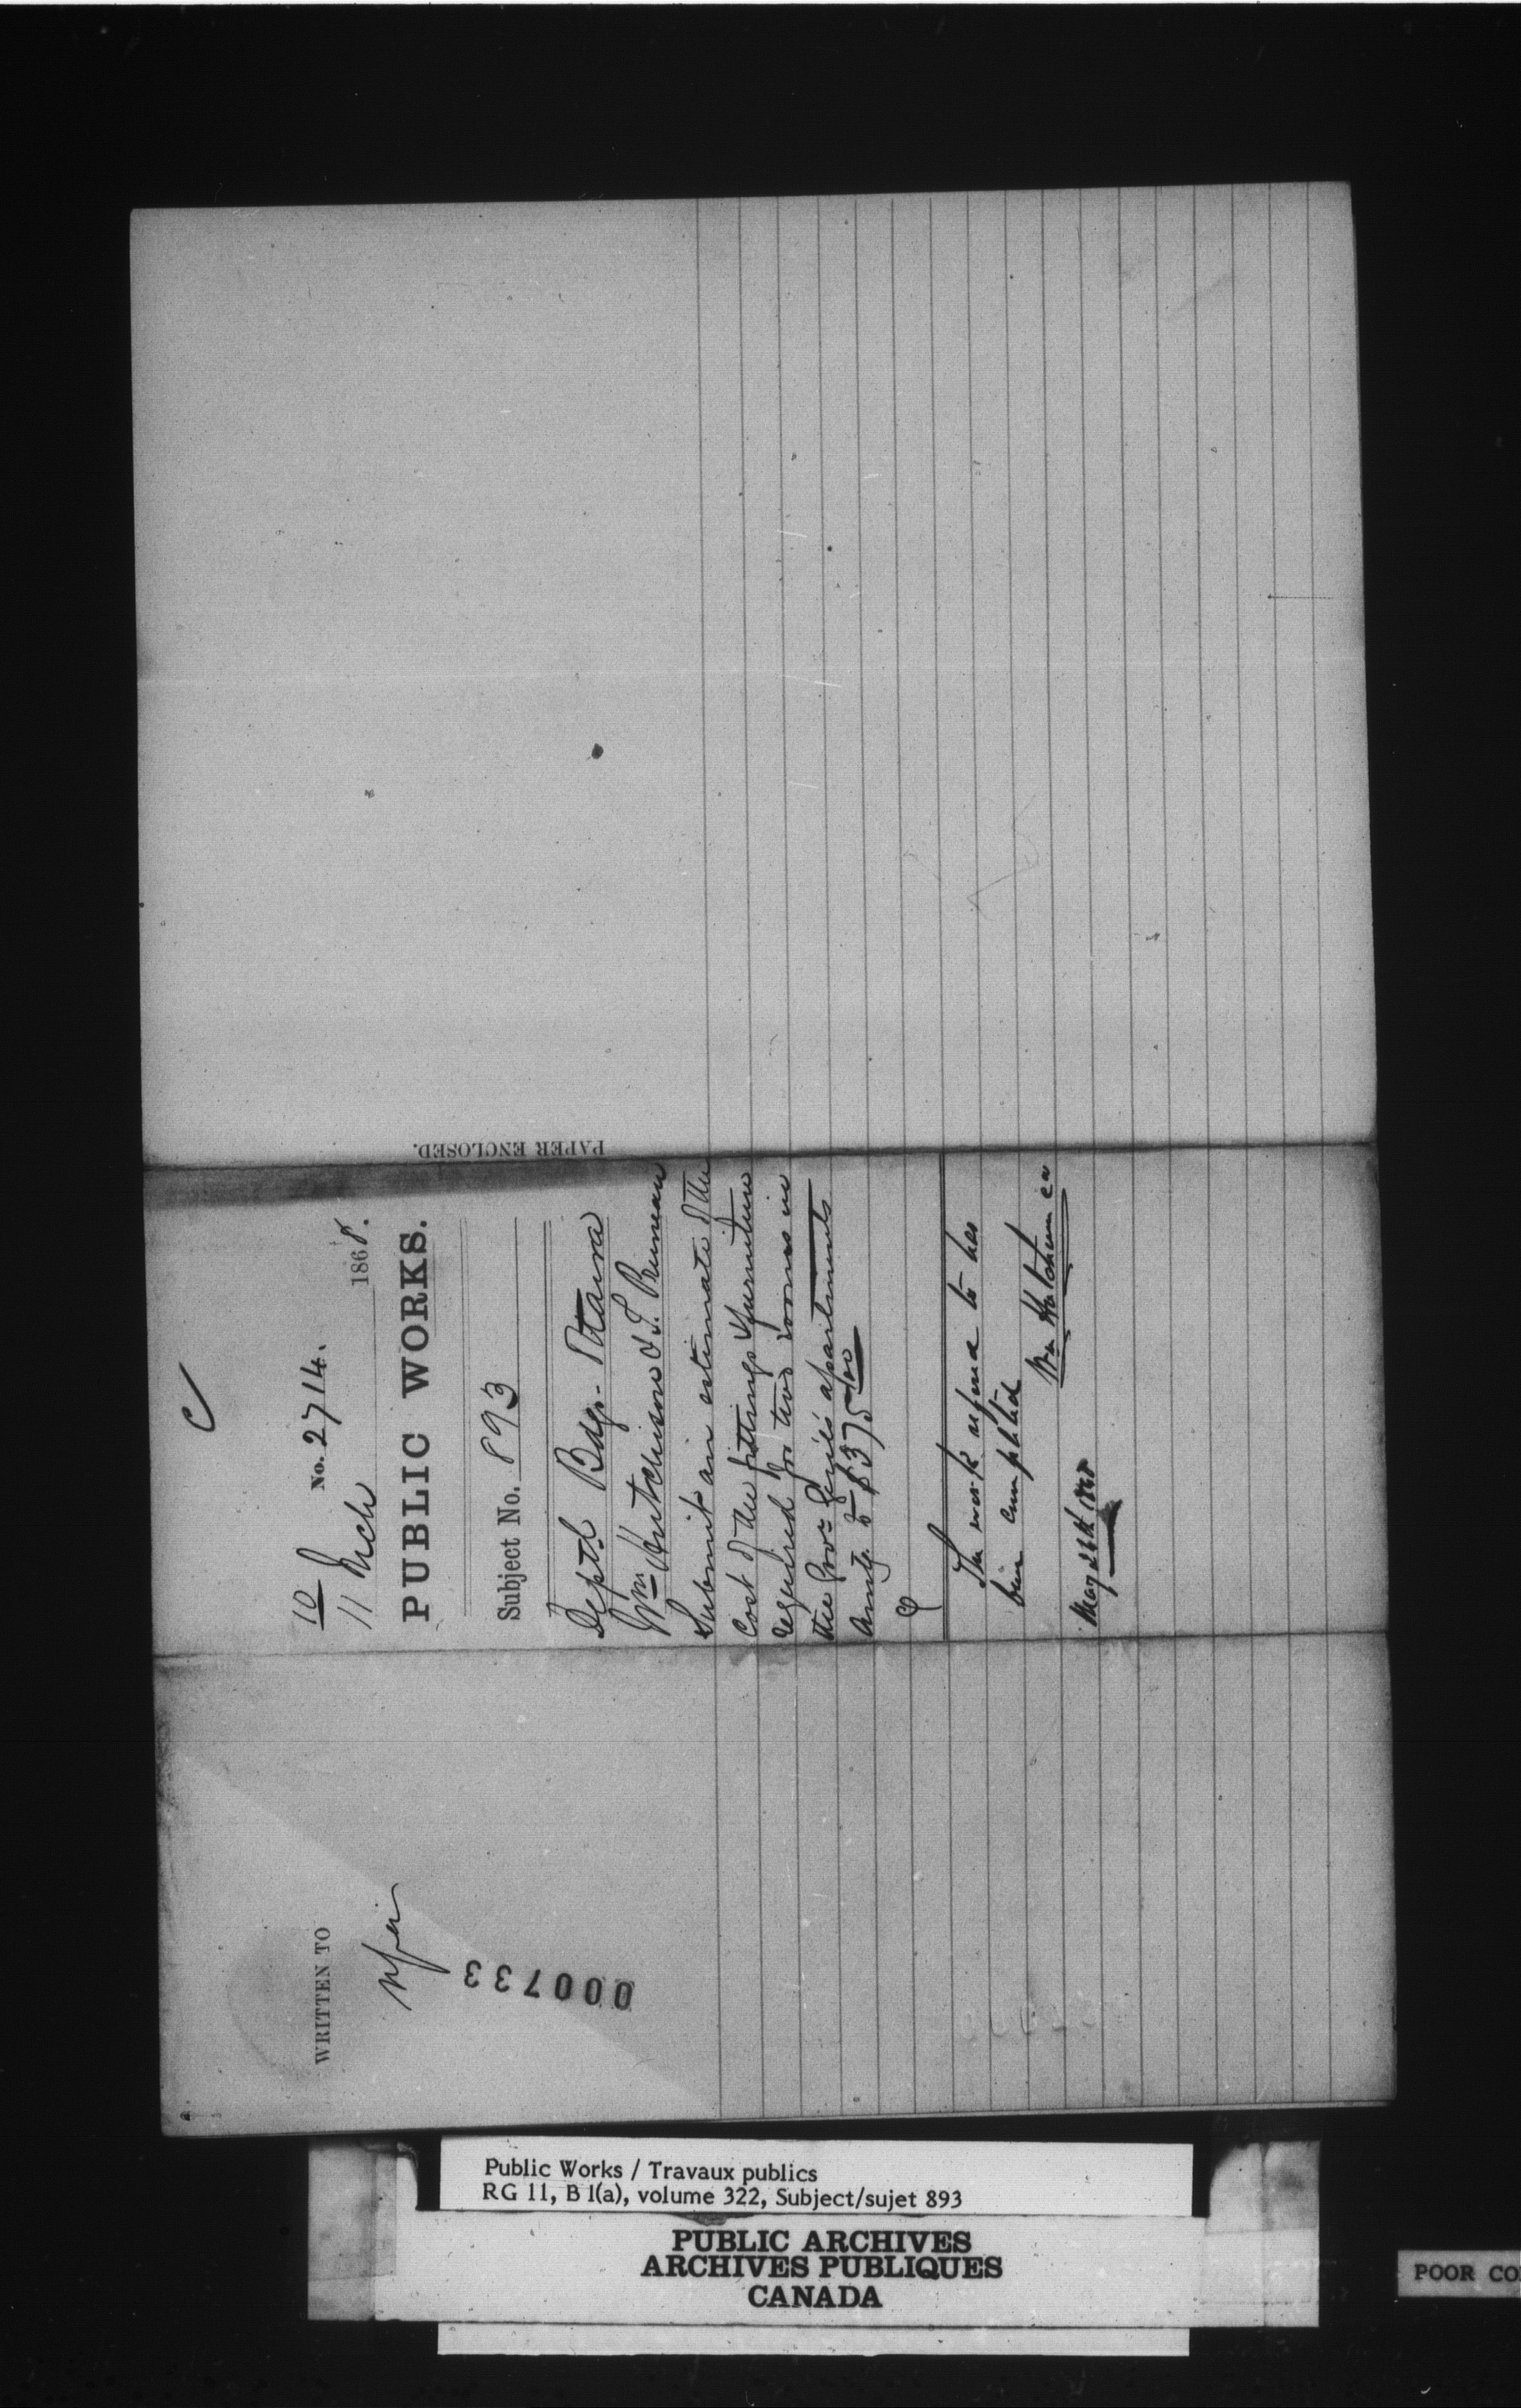 C
10
No. 2714.
11 Mch 1868.
PUBLIC WORKS.
Subject No. 893
Deptl Bdgs. Ottawa
Wm Hutchison & F. Bruneau
Submit an estimate of the
cost of the fittings & furniture
required for two rooms in
the Govr Genl's apartments
Amtg. to $375/00
The work referred to has
been completed
Wm Hutchison
May 26th 1868
PAPER ENCLOSED.
WRITTEN TO
000733
Public Works / Travaux publics
RG 11, B 1(a), volume 322, Subject/sujet 893
PUBLIC ARCHIVES
ARCHIVES PUBLIQUES
CANADA
POOR CO